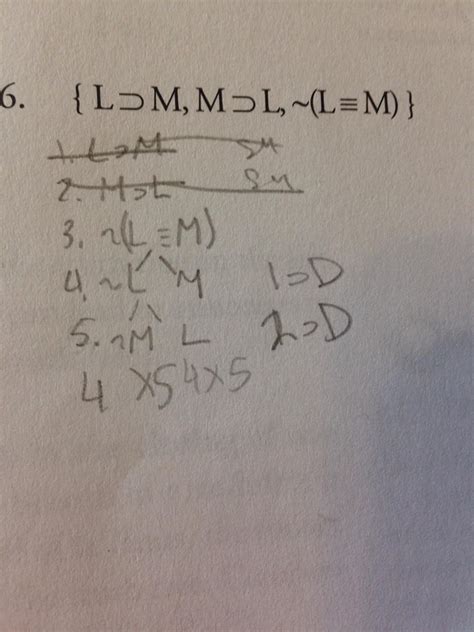 6. { L⊃M, M⊃L, ~(L≡M) }
1. L⊃M SM
2. M⊃L SM
3. ~(L≡M)
4. ~L M 1⊃D
5. ~M L 2⊃D
4 ×5 4×5